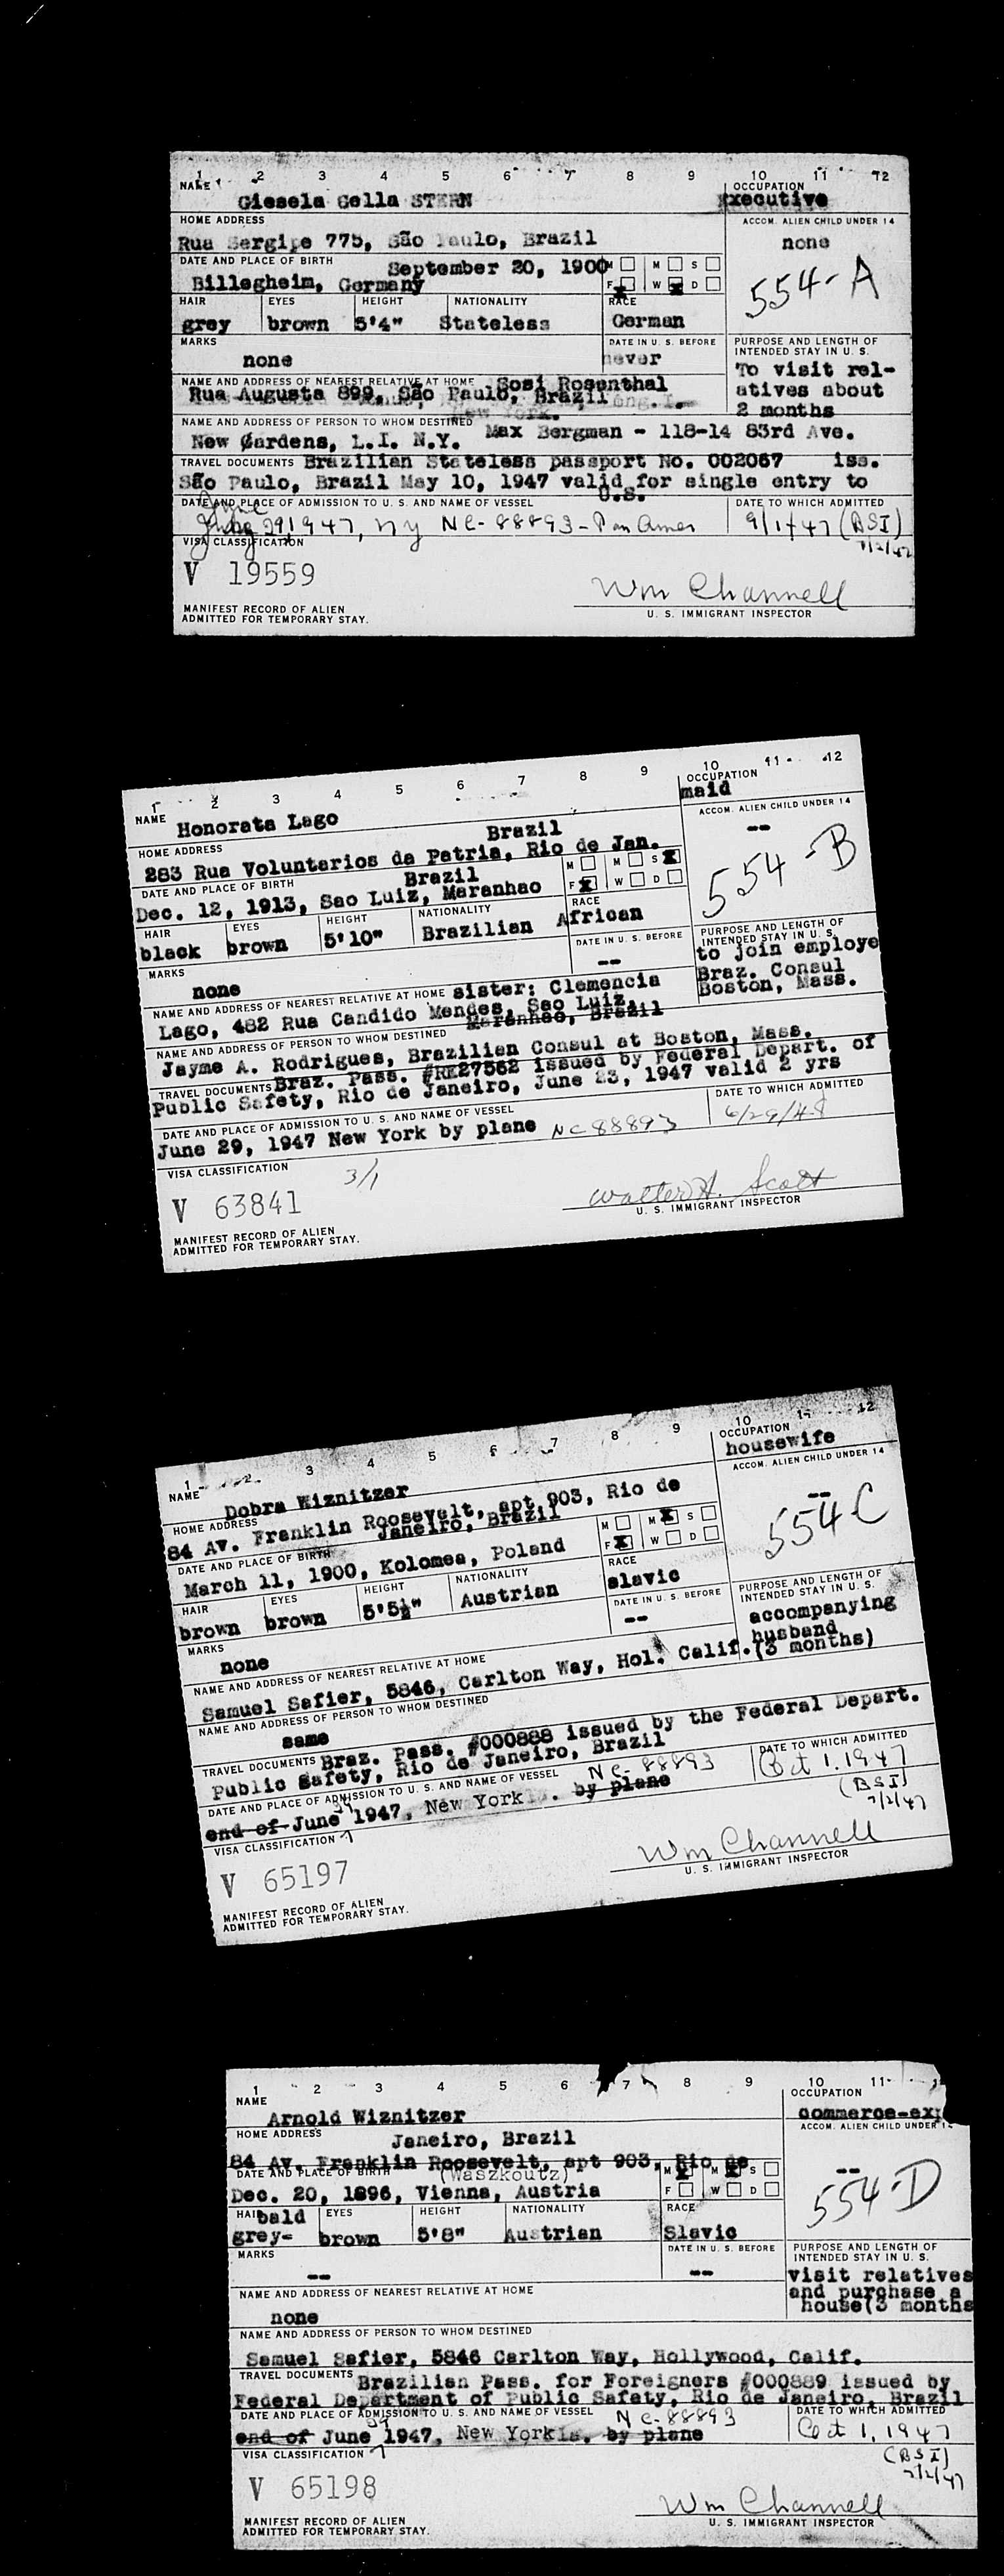 1 2 3 4 5 6 7 8 9 10 11 12
NAME
OCCUPATION
Giesela Cella STERN
Executive
HOME ADDRESS
ACCOM. ALIEN CHILD UNDER 14
Rua Sergipe 775, São Paulo, Brazil
none
DATE AND PLACE OF BIRTH
September 20, 1900
M M S
Billegheim, Germany
F W D
554-A
HAIR EYES HEIGHT NATIONALITY RACE
grey brown 5'4" Stateless German
MARKS
DATE IN U. S. BEFORE
PURPOSE AND LENGTH OF
INTENDED STAY IN U. S.
none
never
To visit rel-
atives about
2 months
NAME AND ADDRESS OF NEAREST RELATIVE AT HOME Sosi Rosenthal
Rua Augusta 899, São Paulo, Brazil
New York.
NAME AND ADDRESS OF PERSON TO WHOM DESTINED Max Bergman - 118-14 83rd Ave.
New Gardens, L.I. N.Y.
TRAVEL DOCUMENTS Brazilian Stateless passport No. 002067 iss.
São Paulo, Brazil May 10, 1947 valid for single entry to
U.S.
DATE AND PLACE OF ADMISSION TO U. S. AND NAME OF VESSEL
DATE TO WHICH ADMITTED
June
29, 1947, ny NC-88893-Pan Amer
9/1/47 (BSI)
7/2/47
VISA CLASSIFICATION
V 19559
Wm Channell
MANIFEST RECORD OF ALIEN
ADMITTED FOR TEMPORARY STAY.
U. S. IMMIGRANT INSPECTOR
1 2 3 4 5 6 7 8 9 10 11 12
NAME
OCCUPATION
Honorata Lago
maid
HOME ADDRESS
Brazil
ACCOM. ALIEN CHILD UNDER 14
--
283 Rua Voluntarios da Patria, Rio de Jan.
DATE AND PLACE OF BIRTH
Brazil
M M S
Dec. 12, 1913, Sao Luiz, Maranhao
F W D
554-B
HAIR EYES HEIGHT NATIONALITY RACE
black brown 5'10" Brazilian African
MARKS
DATE IN U. S. BEFORE
PURPOSE AND LENGTH OF
INTENDED STAY IN U. S.
none
--
to join employe
Braz. Consul
Boston, Mass.
NAME AND ADDRESS OF NEAREST RELATIVE AT HOME sister: Clemencia
Lago, 482 Rua Candido Mendes, Sao Luiz,
Maranhao, Brazil
NAME AND ADDRESS OF PERSON TO WHOM DESTINED
Jayme A. Rodrigues, Brazilian Consul at Boston, Mass.
TRAVEL DOCUMENTS Braz. Pass. #RE27562 issued by Federal Depart. of
Public Safety, Rio de Janeiro, June 23, 1947 valid 2 yrs
DATE AND PLACE OF ADMISSION TO U. S. AND NAME OF VESSEL
DATE TO WHICH ADMITTED
June 29, 1947 New York by plane NC 88893
6/29/48
VISA CLASSIFICATION
3/1
V 63841
Walter H. Scott
MANIFEST RECORD OF ALIEN
ADMITTED FOR TEMPORARY STAY.
U. S. IMMIGRANT INSPECTOR
1 2 3 4 5 6 7 8 9 10 11 12
NAME
OCCUPATION
Dobra Wiznitzer
housewife
HOME ADDRESS
ACCOM. ALIEN CHILD UNDER 14
84 Av. Franklin Roosevelt, apt 903, Rio de
Janeiro, Brazil
--
DATE AND PLACE OF BIRTH
M M S
March 11, 1900, Kolomea, Poland
F W D
554 C
HAIR EYES HEIGHT NATIONALITY RACE
brown brown 5'5½" Austrian slavic
MARKS
DATE IN U. S. BEFORE
PURPOSE AND LENGTH OF
INTENDED STAY IN U. S.
none
--
accompanying
husband
(3 months)
NAME AND ADDRESS OF NEAREST RELATIVE AT HOME
Samuel Safier, 5846, Carlton Way, Hol. Calif.
NAME AND ADDRESS OF PERSON TO WHOM DESTINED
same
TRAVEL DOCUMENTS Braz. Pass. #000888 issued by the Federal Depart.
Public Safety, Rio de Janeiro, Brazil
DATE AND PLACE OF ADMISSION TO U. S. AND NAME OF VESSEL NC-88893
DATE TO WHICH ADMITTED
end of June 29 1947, New York . by plane
Oct 1, 1947
(BSI)
7/2/47
VISA CLASSIFICATION
V 65197
Wm Channell
MANIFEST RECORD OF ALIEN
ADMITTED FOR TEMPORARY STAY.
U. S. IMMIGRANT INSPECTOR
1 2 3 4 5 6 7 8 9 10 11
NAME
OCCUPATION
Arnold Wiznitzer
commerce-exp
HOME ADDRESS
Janeiro, Brazil
ACCOM. ALIEN CHILD UNDER 1
84 Av. Franklin Roosevelt, apt 903, Rio de
--
DATE AND PLACE OF BIRTH (Waszkoutz)
M M S
Dec. 20, 1896, Vienna, Austria
F W D
554-D
HAIR bald EYES HEIGHT NATIONALITY RACE
grey- brown 5'8" Austrian Slavic
MARKS
DATE IN U. S. BEFORE
PURPOSE AND LENGTH OF
INTENDED STAY IN U. S.
--
--
visit relatives
and purchase a
house(3 months
NAME AND ADDRESS OF NEAREST RELATIVE AT HOME
none
NAME AND ADDRESS OF PERSON TO WHOM DESTINED
Samuel Safier, 5846 Carlton Way, Hollywood, Calif.
TRAVEL DOCUMENTS Brazilian Pass. for Foreigners #000889 issued by
Federal Department of Public Safety, Rio de Janeiro, Brazil
DATE AND PLACE OF ADMISSION TO U. S. AND NAME OF VESSEL NC-88893
DATE TO WHICH ADMITTED
end of June 29 1947, New York by plane
Oct 1, 1947
(BSI)
7/2/47
VISA CLASSIFICATION
V 65198
Wm Channell
MANIFEST RECORD OF ALIEN
ADMITTED FOR TEMPORARY STAY.
U. S. IMMIGRANT INSPECTOR